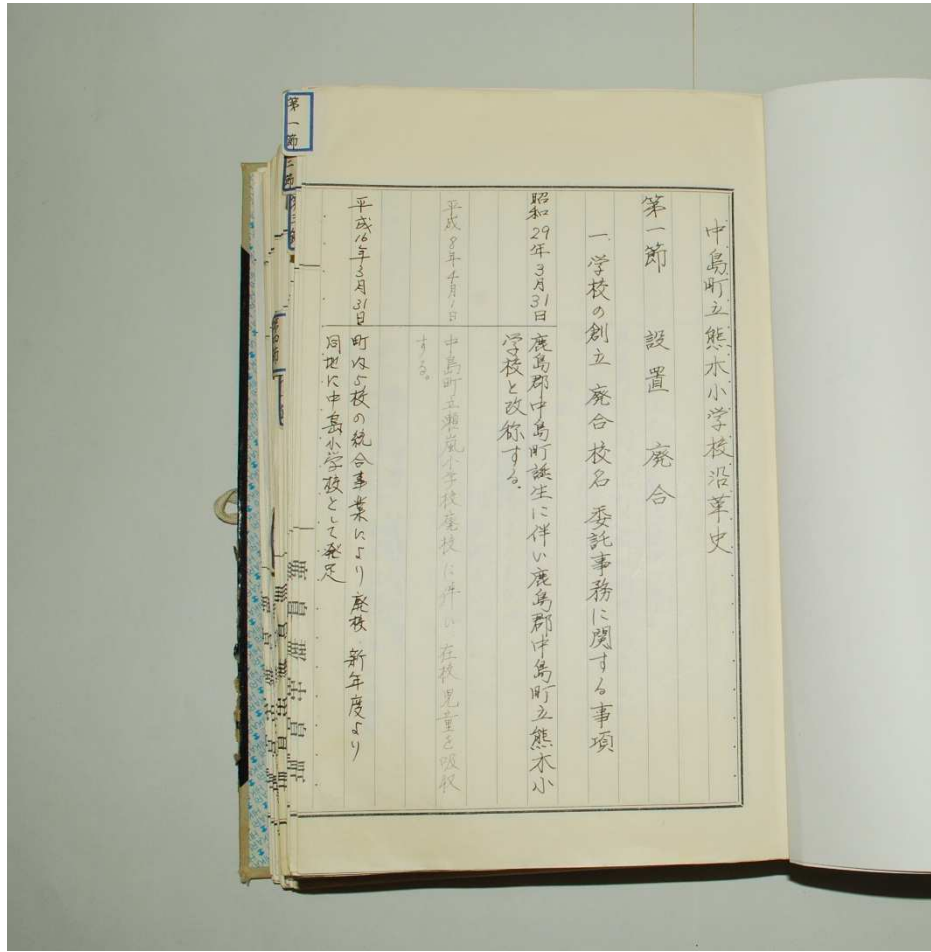 中島町立熊木小学校沿革史
第一節 設置 廃合
一 学校の創立 廃合 校名 委託事務に関する事項
昭和29年3月31日 鹿島郡中島町誕生に伴い鹿島郡中島町立熊木小
学校と改称する。
平成8年4月1日 中島町立瀬嵐小学校廃校に伴い 在校児童を吸収
する。
平成16年3月31日 町内5校の統合事業により廃校 新年度より
同地に中島小学校として発足
第一節